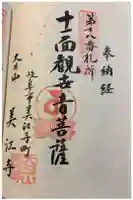 奉納経
第十八番札所
十一面観世音菩薩
岐阜市美江寺町
大日山 美江寺